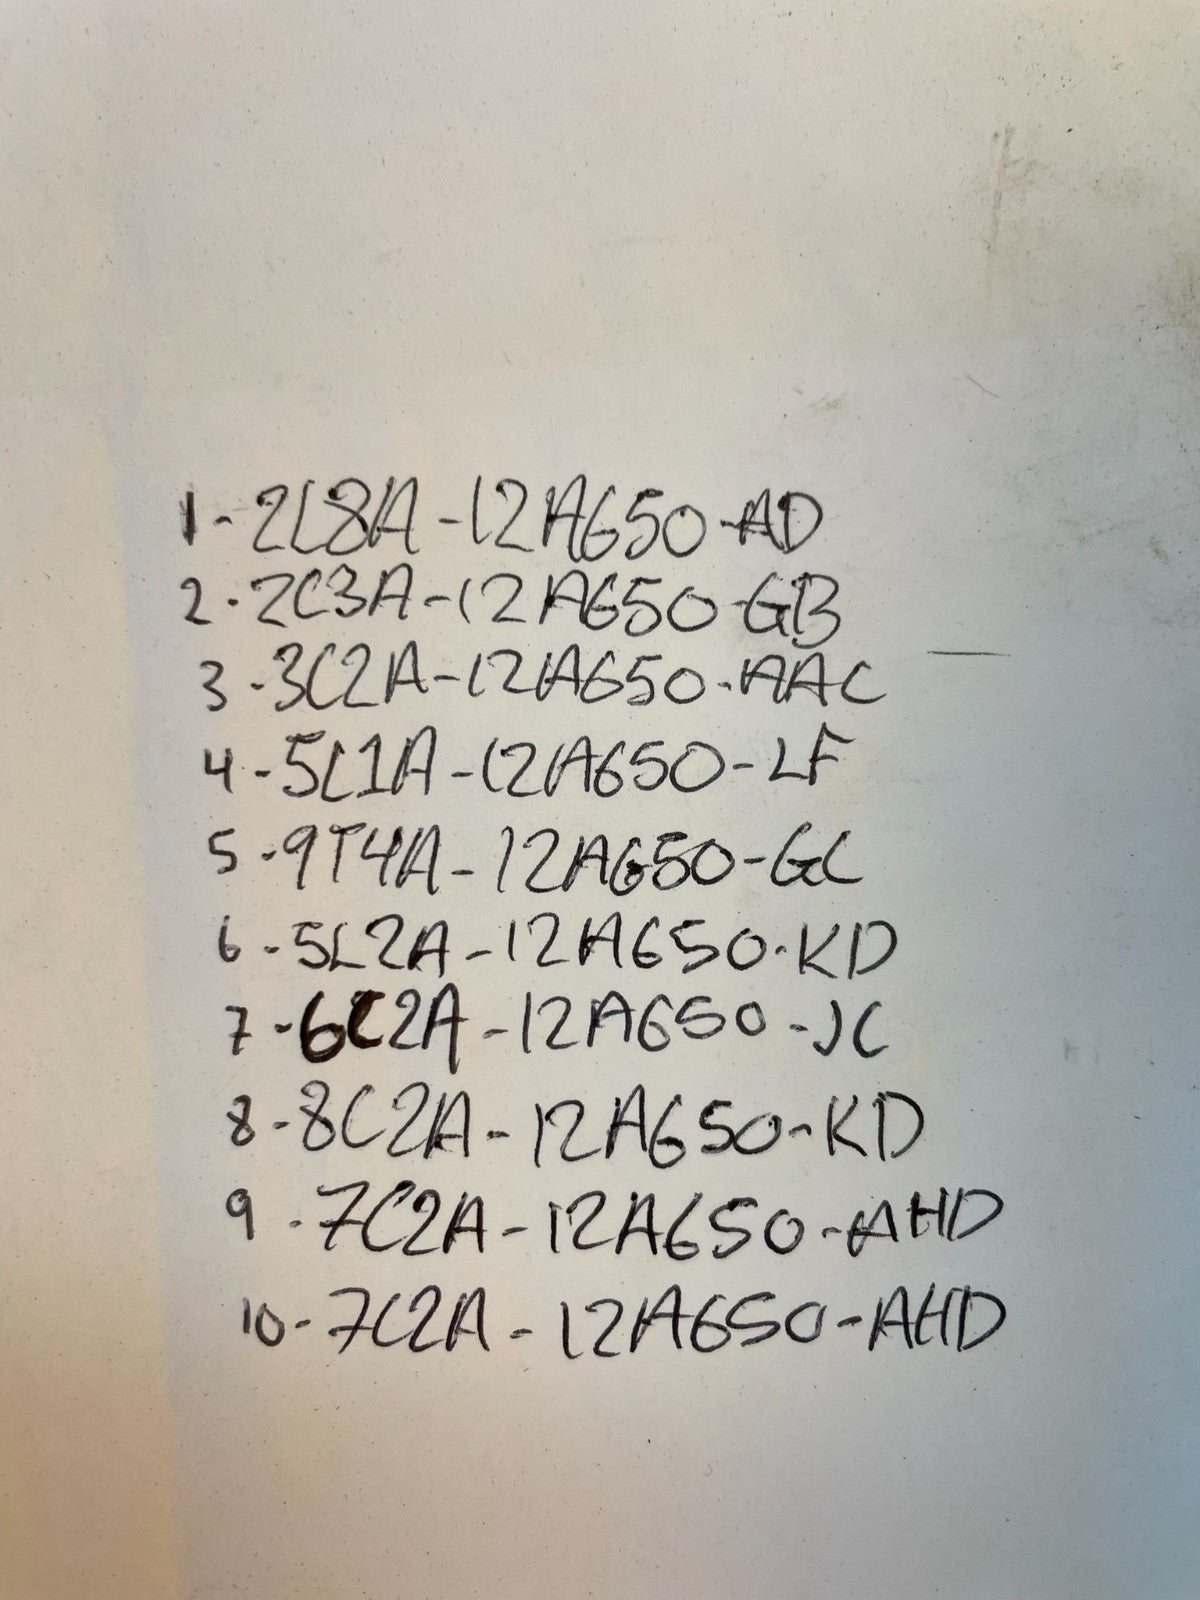 1-2L8A-12A650-AD
2-2C3A-12A650-GB
3-3C2A-12A650-AAC
4-5L1A-12A650-LF
5-9T4A-12A650-GC
6-5L2A-12A650-KD
7-6C2A-12A650-JC
8-8C2A-12A650-KD
9-7C2A-12A650-AHD
10-7C2A-12A650-AHD